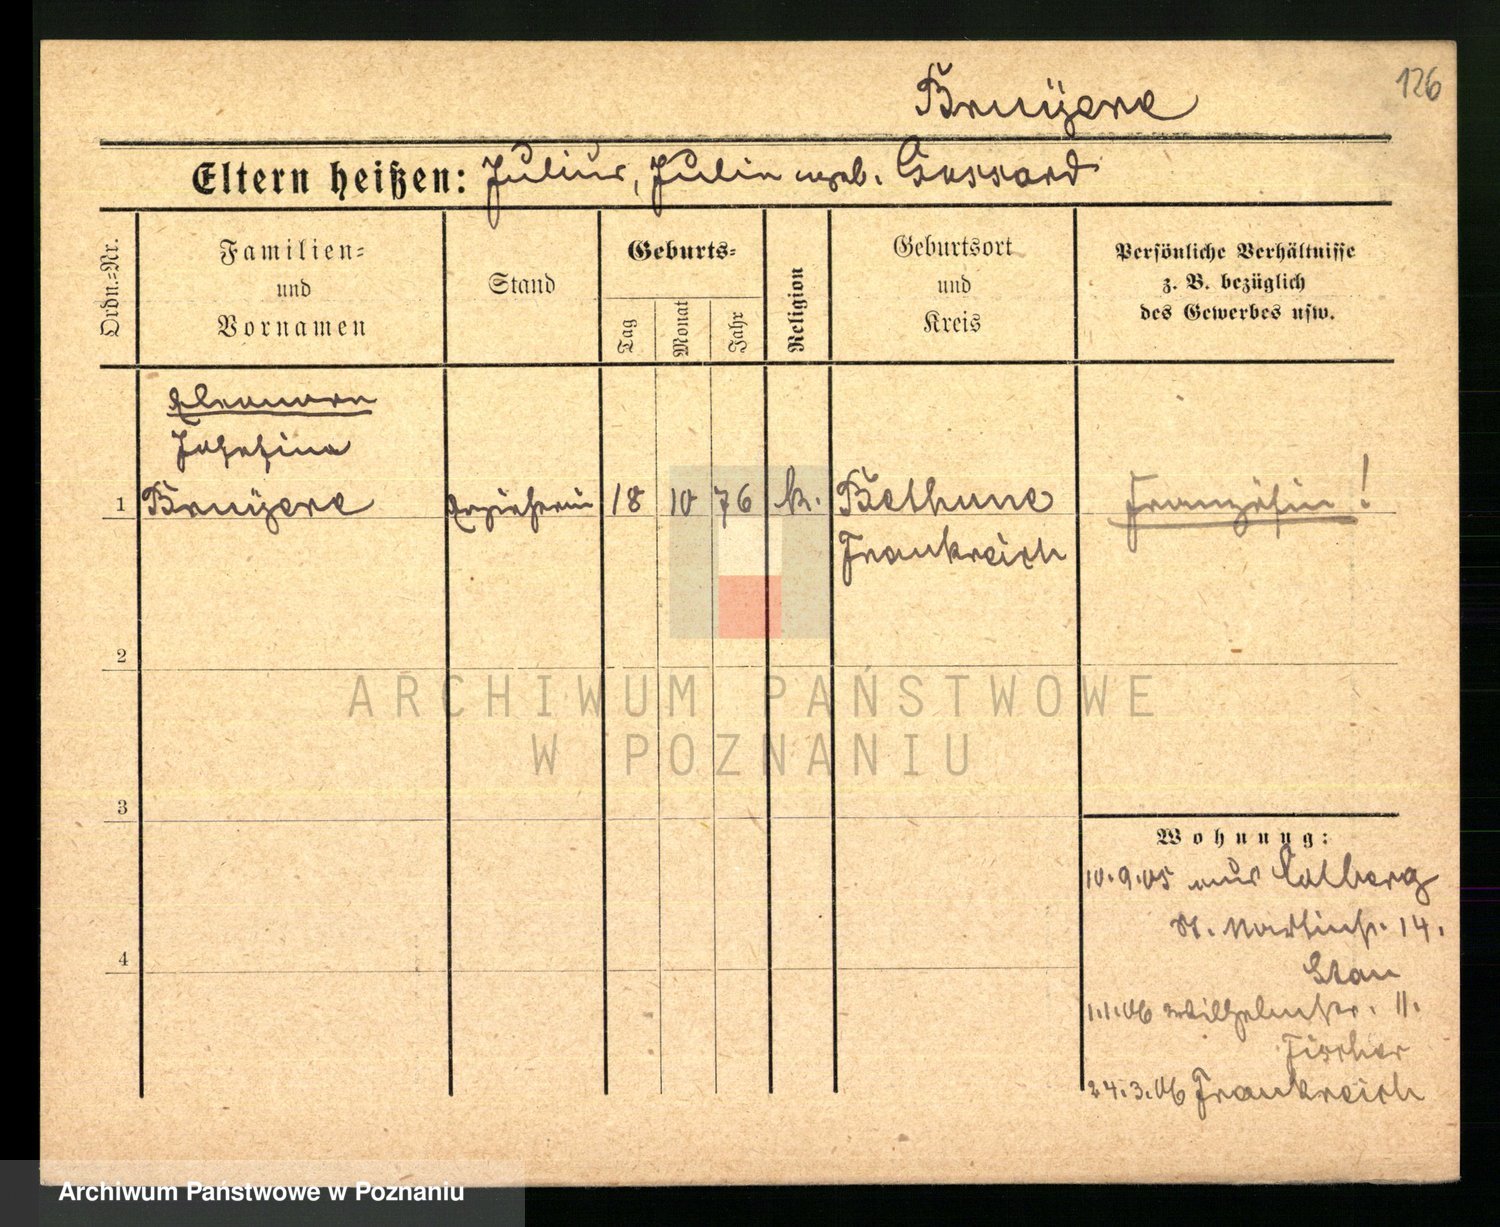 126
Bruÿere
Eltern heißen: Julius, Julie geb. Gossard
Ordn.=Nr.
Familien=
und
Vornamen
Stand
Geburts=
Tag
Monat
Jahr
Religion
Geburtsort
und
Kreis
Persönliche Verhältnisse
z. B. bezüglich
des Gewerbes usw.
Eleonore
Josefine
1 Bruÿere Erzieherin 18 10 76 k. Bethune Französin!
Frankreich
2
ARCHIWUM PAŃSTWOWE
W POZNANIU
3
Wohnung:
10.9.05 aus Colberg
St. Martinstr. 14.
4
1.1.06 Wilhelmstr. 11.
Fischer
24.3.06 Frankreich
Archiwum Państwowe w Poznaniu